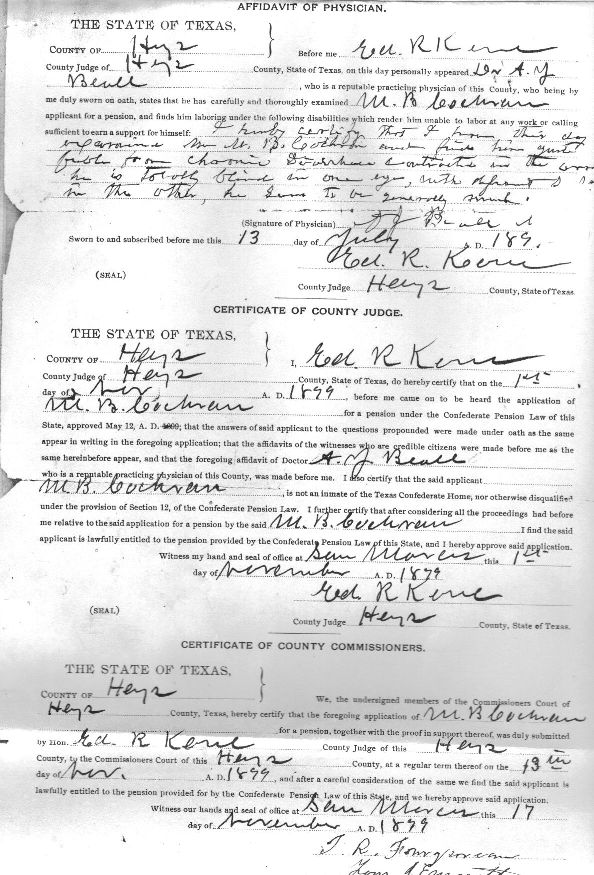 AFFIDAVIT OF PHYSICIAN.
THE STATE OF TEXAS,
COUNTY OF Hays Before me Ed. R Kone
County Judge of Hays County, State of Texas, on this day personally appeared Dr A. J
Beall , who is a reputable practicing physician of this County, who being by
me duly sworn on oath, states that he has carefully and thoroughly examined M. B Cochran
applicant for a pension, and finds him laboring under the following disabilities which render him unable to labor at any work or calling
sufficient to earn a support for himself: I hereby certify that I have this day
examined Mr M. B. Cochran and find him quite
feeble from chronic Diarrhoea contracted in the
he is totally blind in one eye, with
in the other, he seems to be generally
(Signature of Physician) A J Beall
Sworn to and subscribed before me this 13 day of July A. D. 189
Ed. R. Kone
(SEAL)
County Judge Hays County, State of Texas
CERTIFICATE OF COUNTY JUDGE.
THE STATE OF TEXAS,
COUNTY OF Hays I, Ed R Kone
County Judge of Hays County, State of Texas, do hereby certify that on the 1st
day of Nov A. D. 1899, before me came on to be heard the application of
M. B. Cochran for a pension under the Confederate Pension Law of this
State, approved May 12, A. D. 1899; that the answers of said applicant to the questions propounded were made under oath as the same
appear in writing in the foregoing application; that the affidavits of the witnesses who are credible citizens were made before me as the
same hereinbefore appear, and that the foregoing affidavit of Doctor A. J Beall
who is a reputable practicing physician of this County, was made before me. I also certify that the said applicant
M B. Cochran , is not an inmate of the Texas Confederate Home, nor otherwise disqualified
under the provision of Section 12, of the Confederate Pension Law. I further certify that after considering all the proceedings had before
me relative to the said application for a pension by the said M. B. Cochran I find the said
applicant is lawfully entitled to the pension provided by the Confederate Pension Law of this State, and I hereby approve said application.
Witness my hand and seal of office at San Marcos this 1st
day of November A. D. 1899
Ed. R Kone
(SEAL)
County Judge Hays County, State of Texas.
CERTIFICATE OF COUNTY COMMISSIONERS.
THE STATE OF TEXAS,
COUNTY OF Hays We, the undersigned members of the Commissioners Court of
Hays County, Texas, hereby certify that the foregoing application of M. B Cochran
for a pension, together with the proof in support thereof, was duly submitted
by Hon. Ed. R Kone County Judge of this Hays
County, to the Commissioners Court of this Hays County, at a regular term thereof on the 13th
day of Nov. A. D. 1899, and after a careful consideration of the same we find the said applicant is
lawfully entitled to the pension provided for by the Confederate Pension Law of this State, and we hereby approve said application.
Witness our hands and seal of office at San Marcos this 17
day of November A. D. 1899